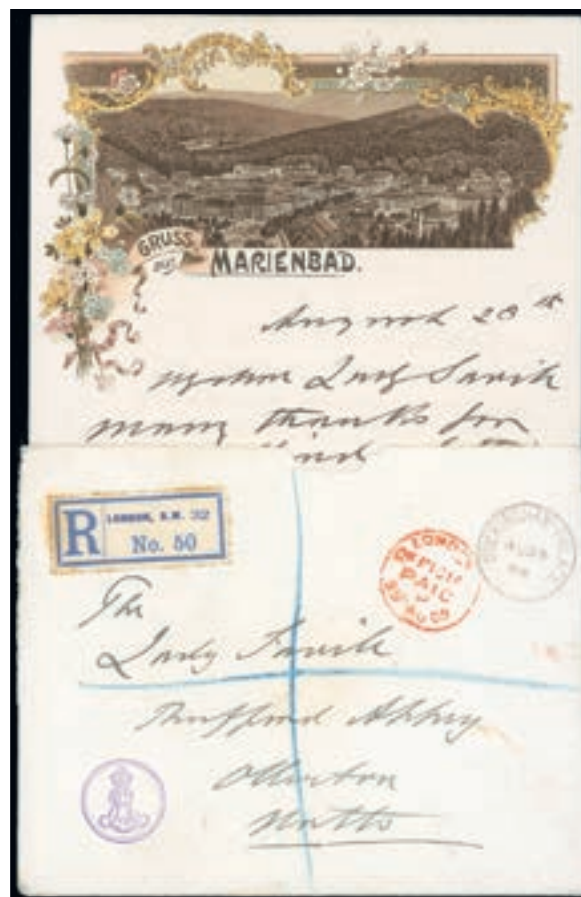 GRUSS
aus
MARIENBAD.
August 20th
My dear Lady Savile
many thanks for
kind
R LONDON, S.W.
No. 50
LONDON
OFFICIAL
PAID
AU 09
The
Lady Savile
Rufford Abbey
Ollerton
Notts